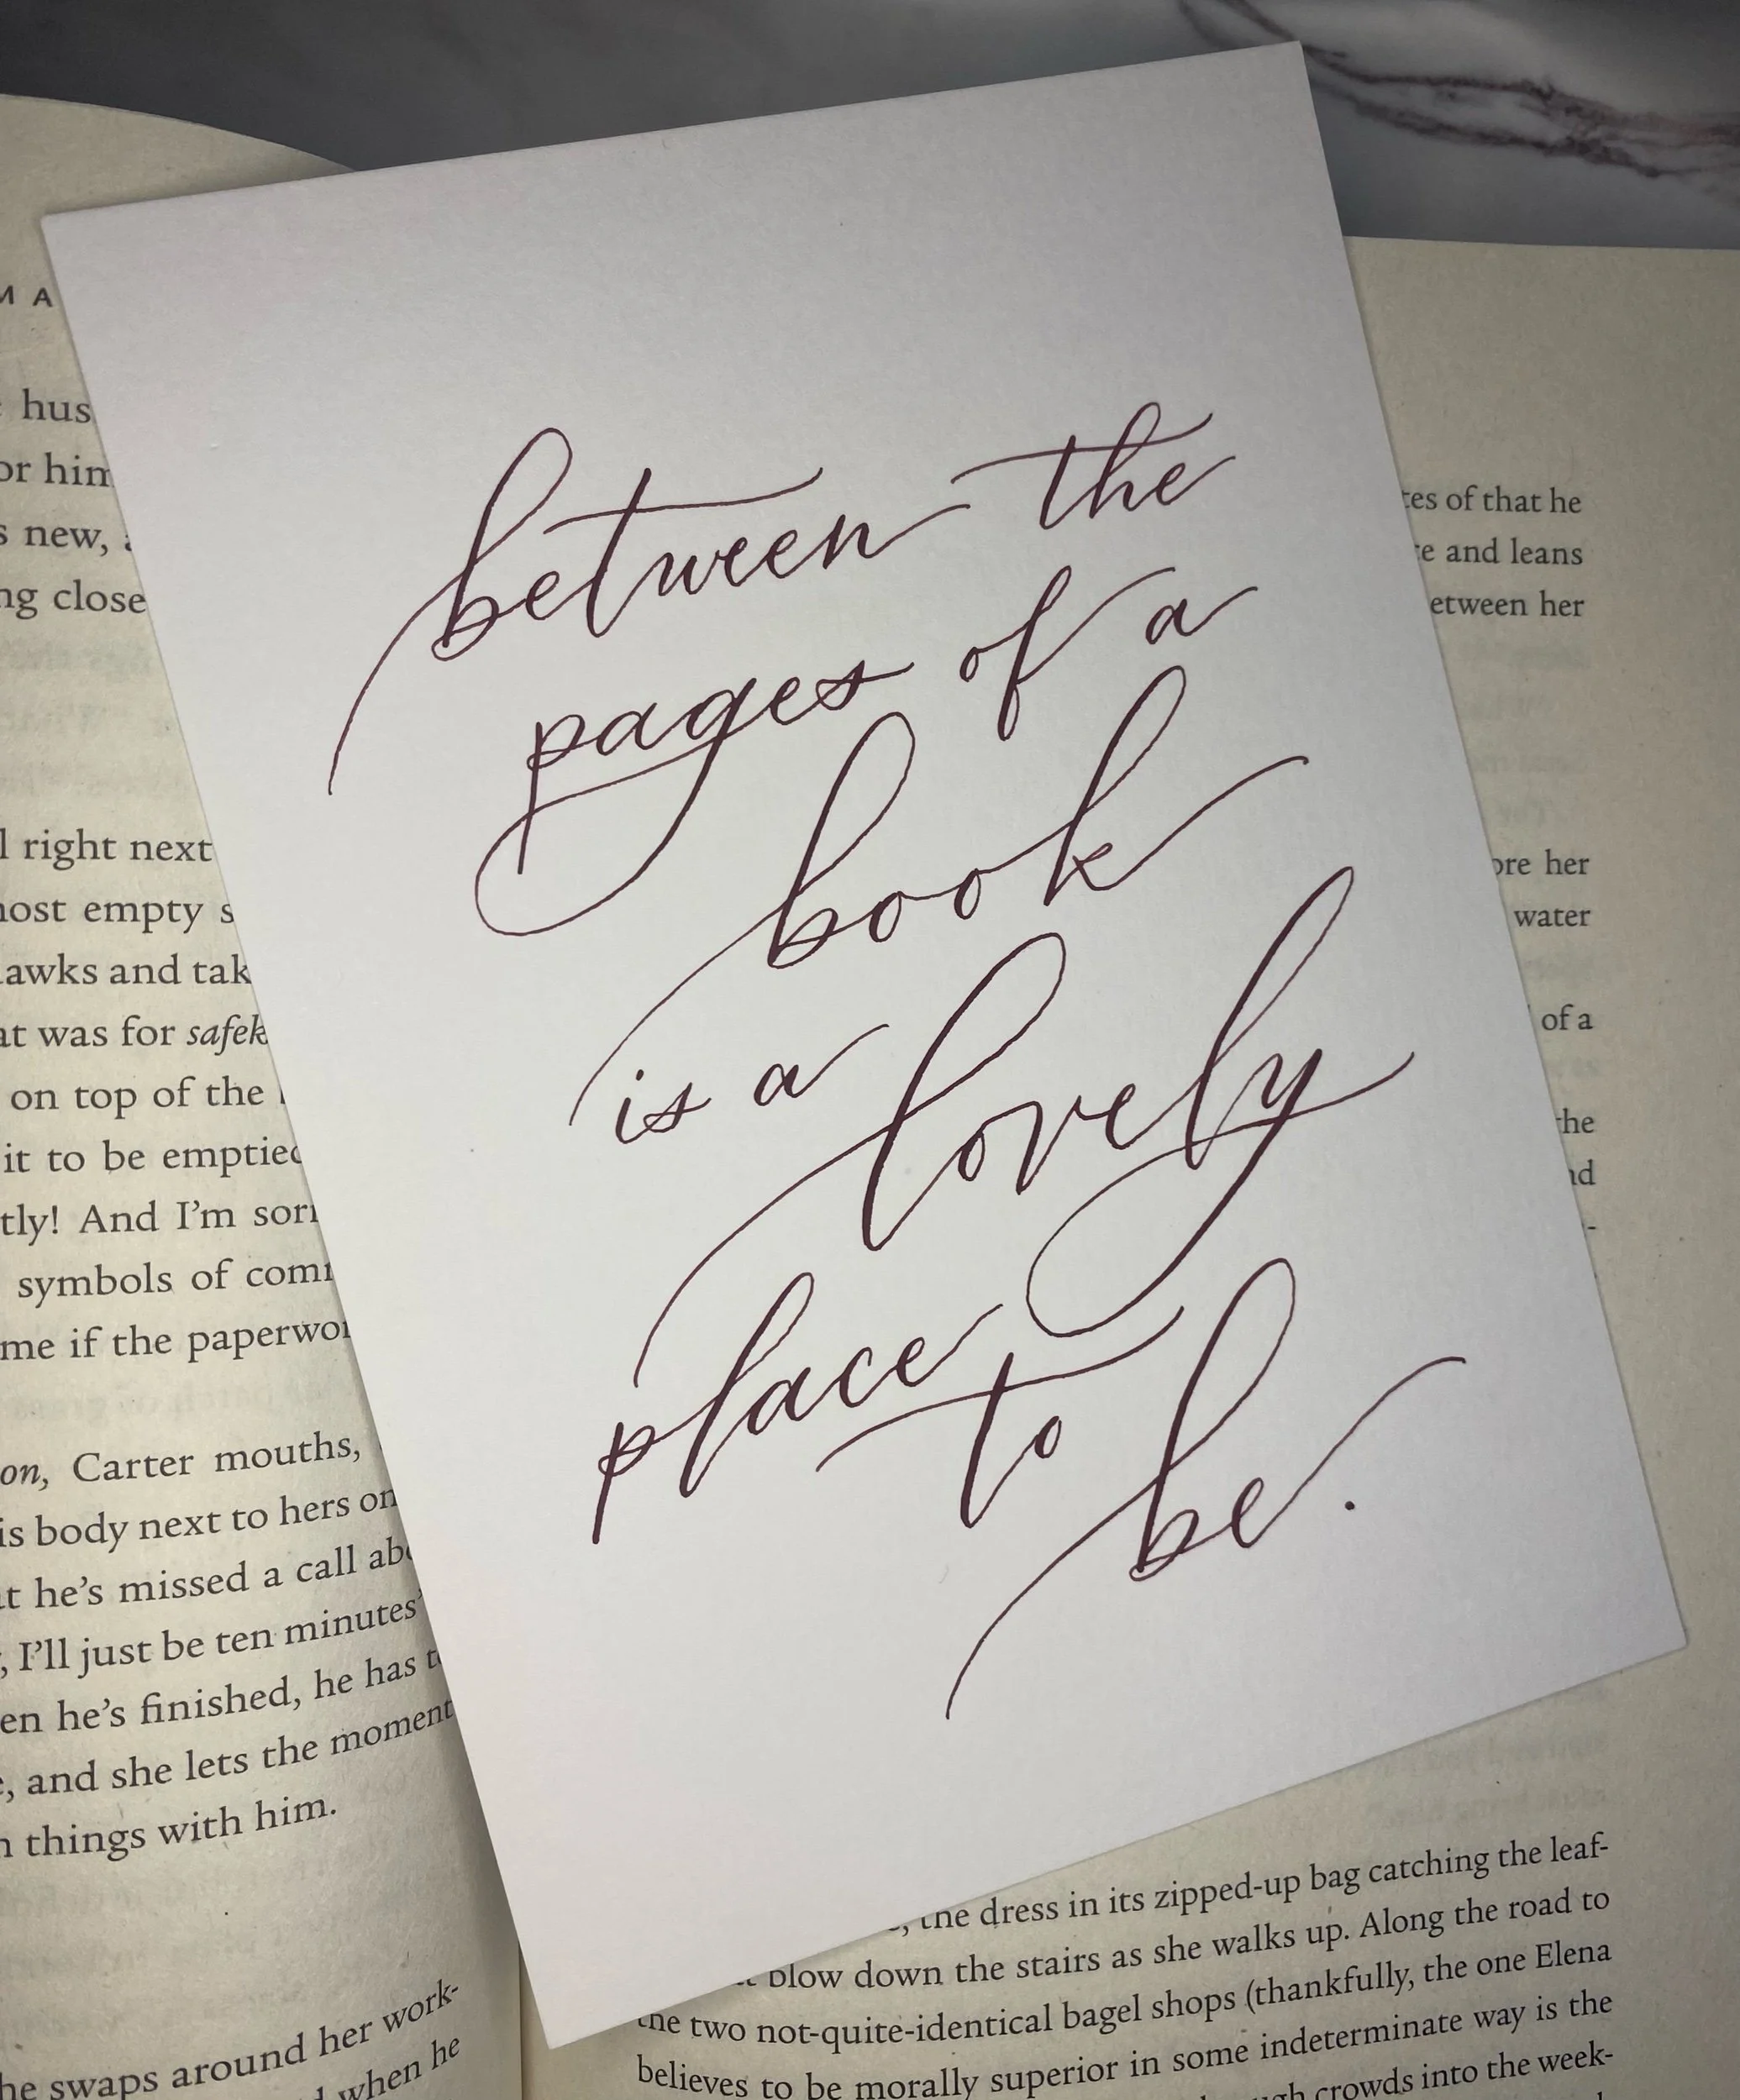 between the
pages of a
book
is a lovely
place to
be.
hus
new,
close
right next
empty
awks and
was for
on top of the
it to be
tly! And I'm
symbols of
me if the
on, Carter mouths,
is body next to hers on
he's missed a call
I'll just be ten minutes'
he's finished, he has
and she lets the moment
things with him.
swaps around her work-
when he
of that he
and leans
her
her
water
of a
the dress in its zipped-up bag catching the leaf-
blow down the stairs as she walks up. Along the road to
the two not-quite-identical bagel shops (thankfully, the one Elena
believes to be morally superior in some indeterminate way is the
crowds into the week-